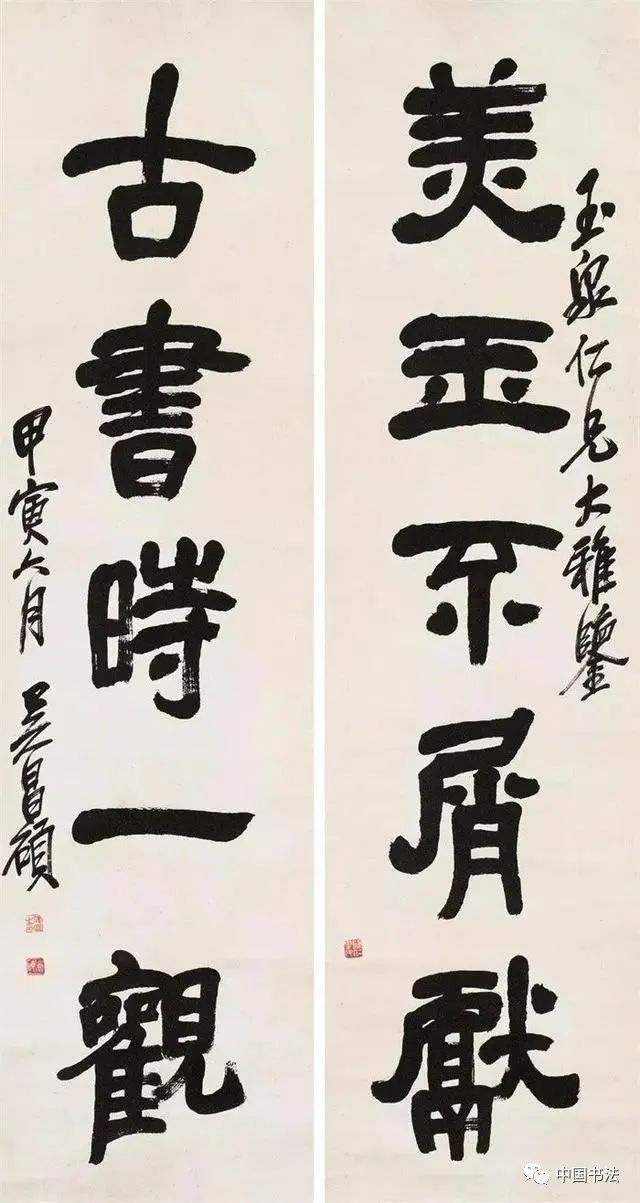 玉泉仁兄大雅鑒
美玉不屑獻
古書時一觀
甲寅六月 吳昌碩
中国书法